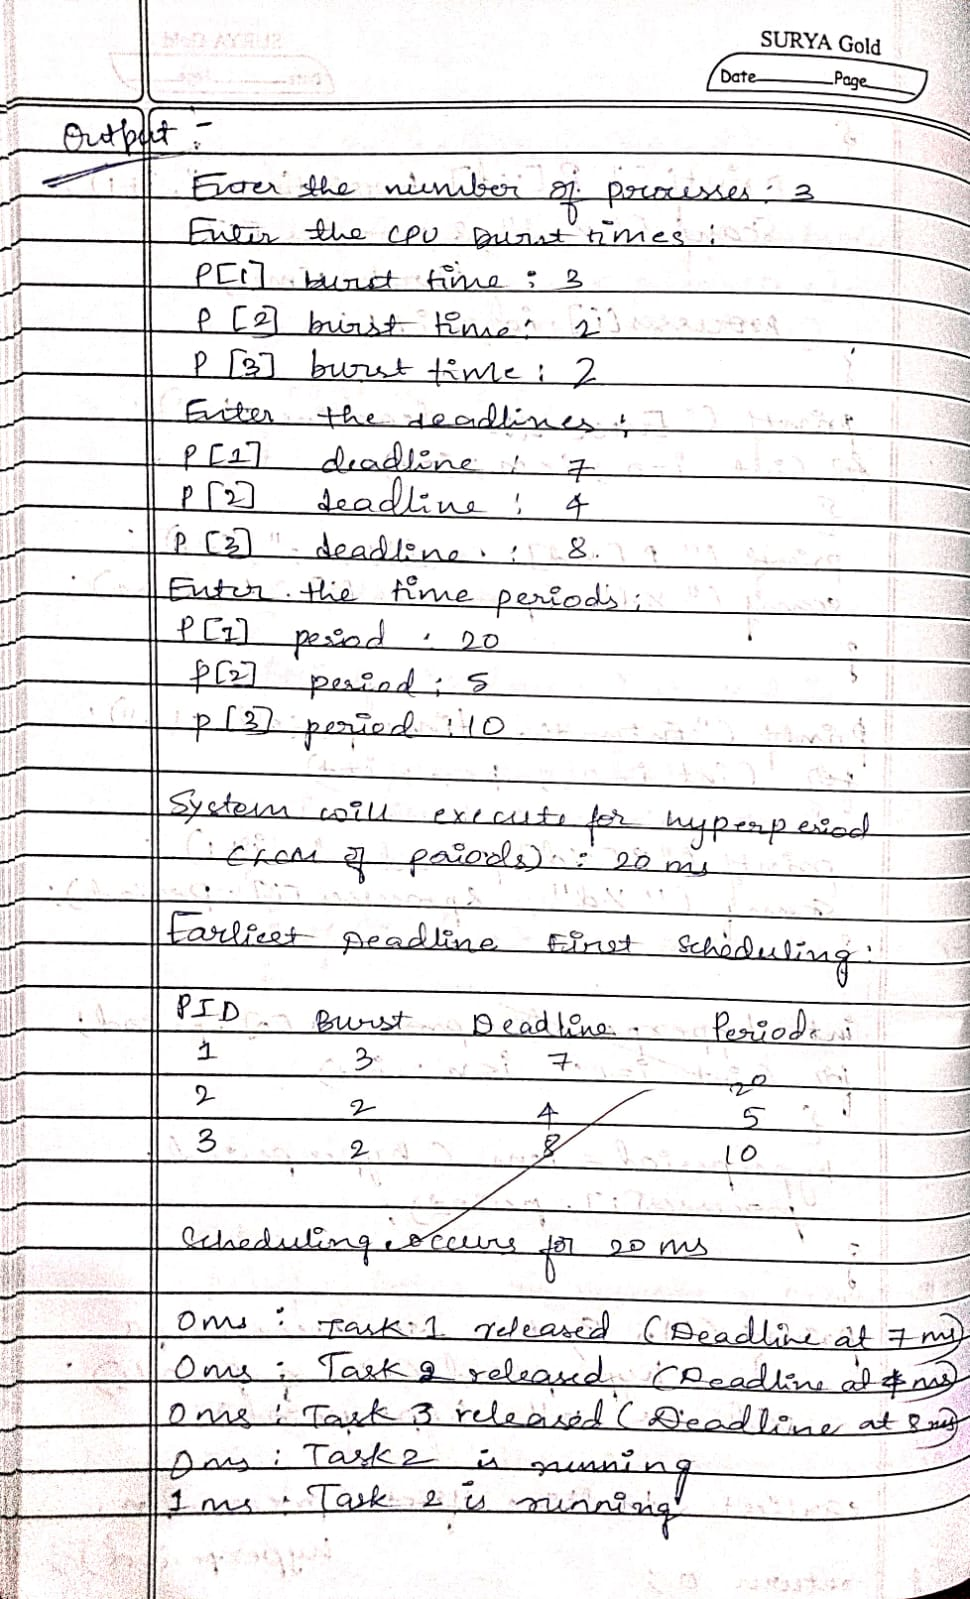 SURYA Gold
Date Page
Output :-
Enter the number of processes : 3
Enter the CPU Burst times :
P[1] burst time : 3
P [2] burst time : 2
P [3] burst time : 2
Enter the deadlines :
P[1] deadline : 7
P[2] deadline : 4
P [3] deadline : 8
Enter the time periods :
P[1] period : 20
P[2] period : 5
P[3] period : 10
System will execute for hyperperiod
(LCM of periods) : 20 ms
Earliest Deadline First Scheduling :
PID Burst Deadline Period
1 3 7 20
2 2 4 5
3 2 8 10
Scheduling occurs for 20 ms
0ms : Task 1 released (Deadline at 7 ms)
0ms : Task 2 released (Deadline at 4 ms)
0ms : Task 3 released (Deadline at 8 ms)
0ms : Task 2 is running
1 ms : Task 2 is running